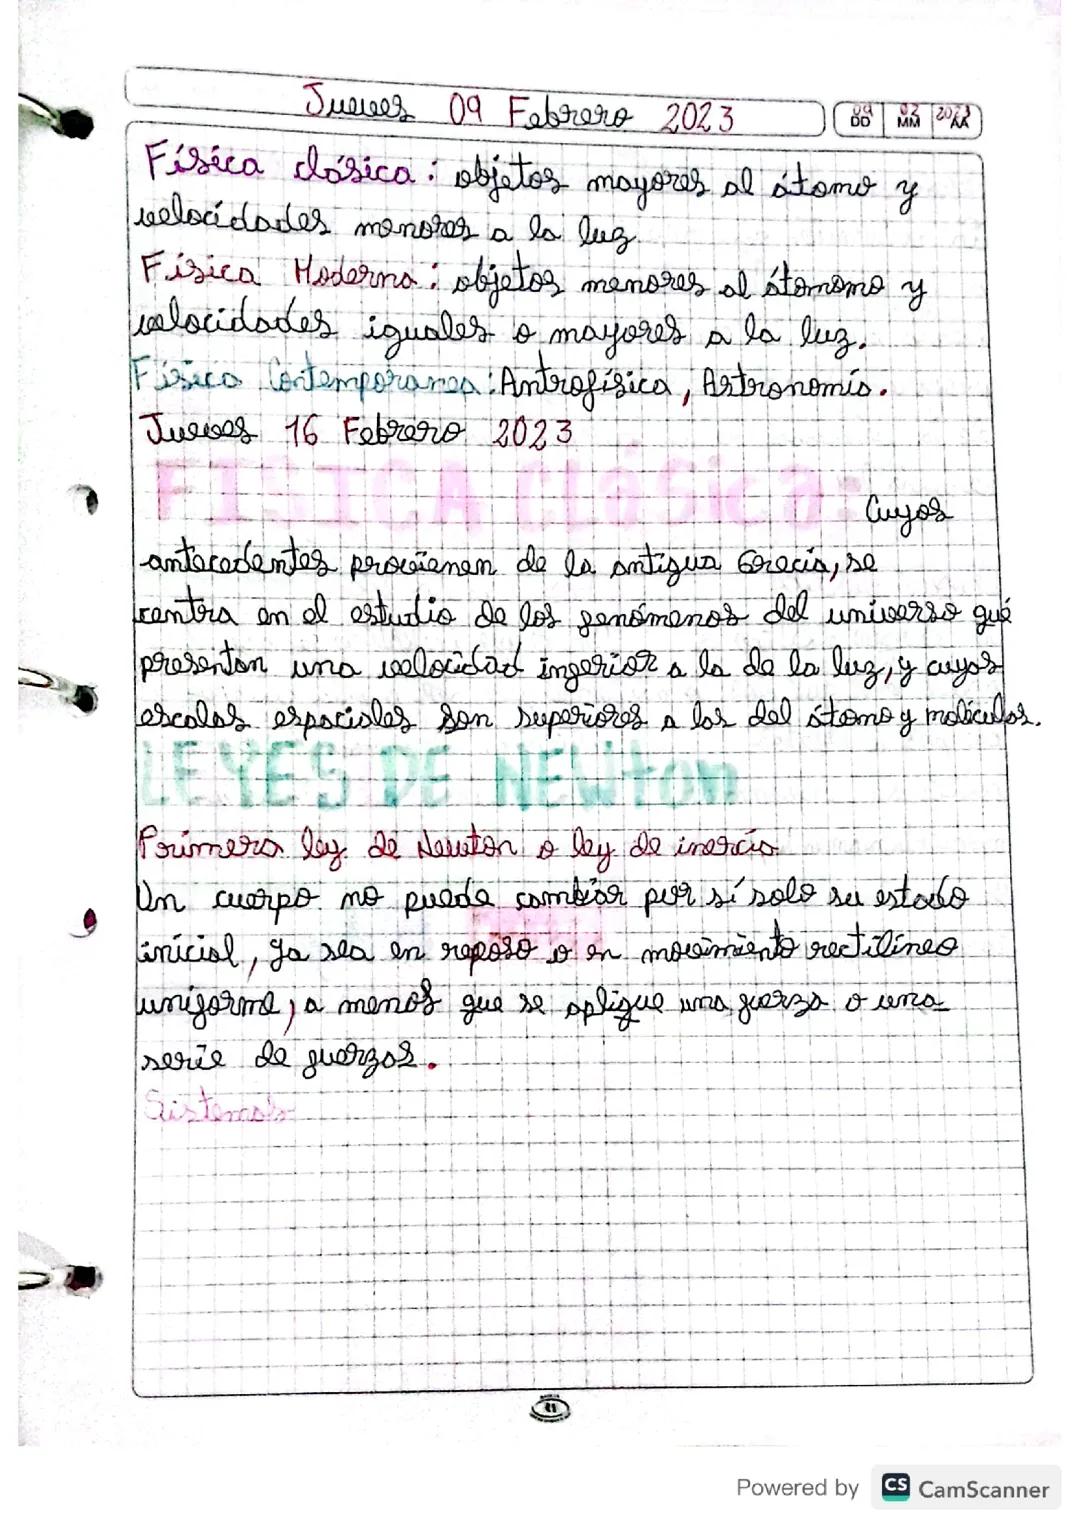 Jueves 09 Febrero 2023
09 02 2023
DD MM AA
Física clásica: objetos mayores al átomo y
velocidades menores a la luz
Física Moderna: objetos menores al átomomo y
velocidades iguales o mayores a la luz.
Física Contemporanea: Antrofísica, Astronomía.
Jueves 16 Febrero 2023
FISICA Clásica:
Cuyos
antecedentes provienen de la antigua Grecia, se
centra en el estudio de los fenómenos del universo qué
presentan una velocidad inferior a la de la luz, y cuyas
escalas espaciales son superiores a las del átomo y moléculas.
LEYES DE NEWton
Primera ley de Newton o ley de inercia
Un cuerpo no puede cambiar por sí solo su estado
inicial, ya sea en reposo o en movimiento rectilíneo
uniforme, a menos que se aplique una fuerza o una
serie de fuerzas.
Sistemas
Powered by CS CamScanner